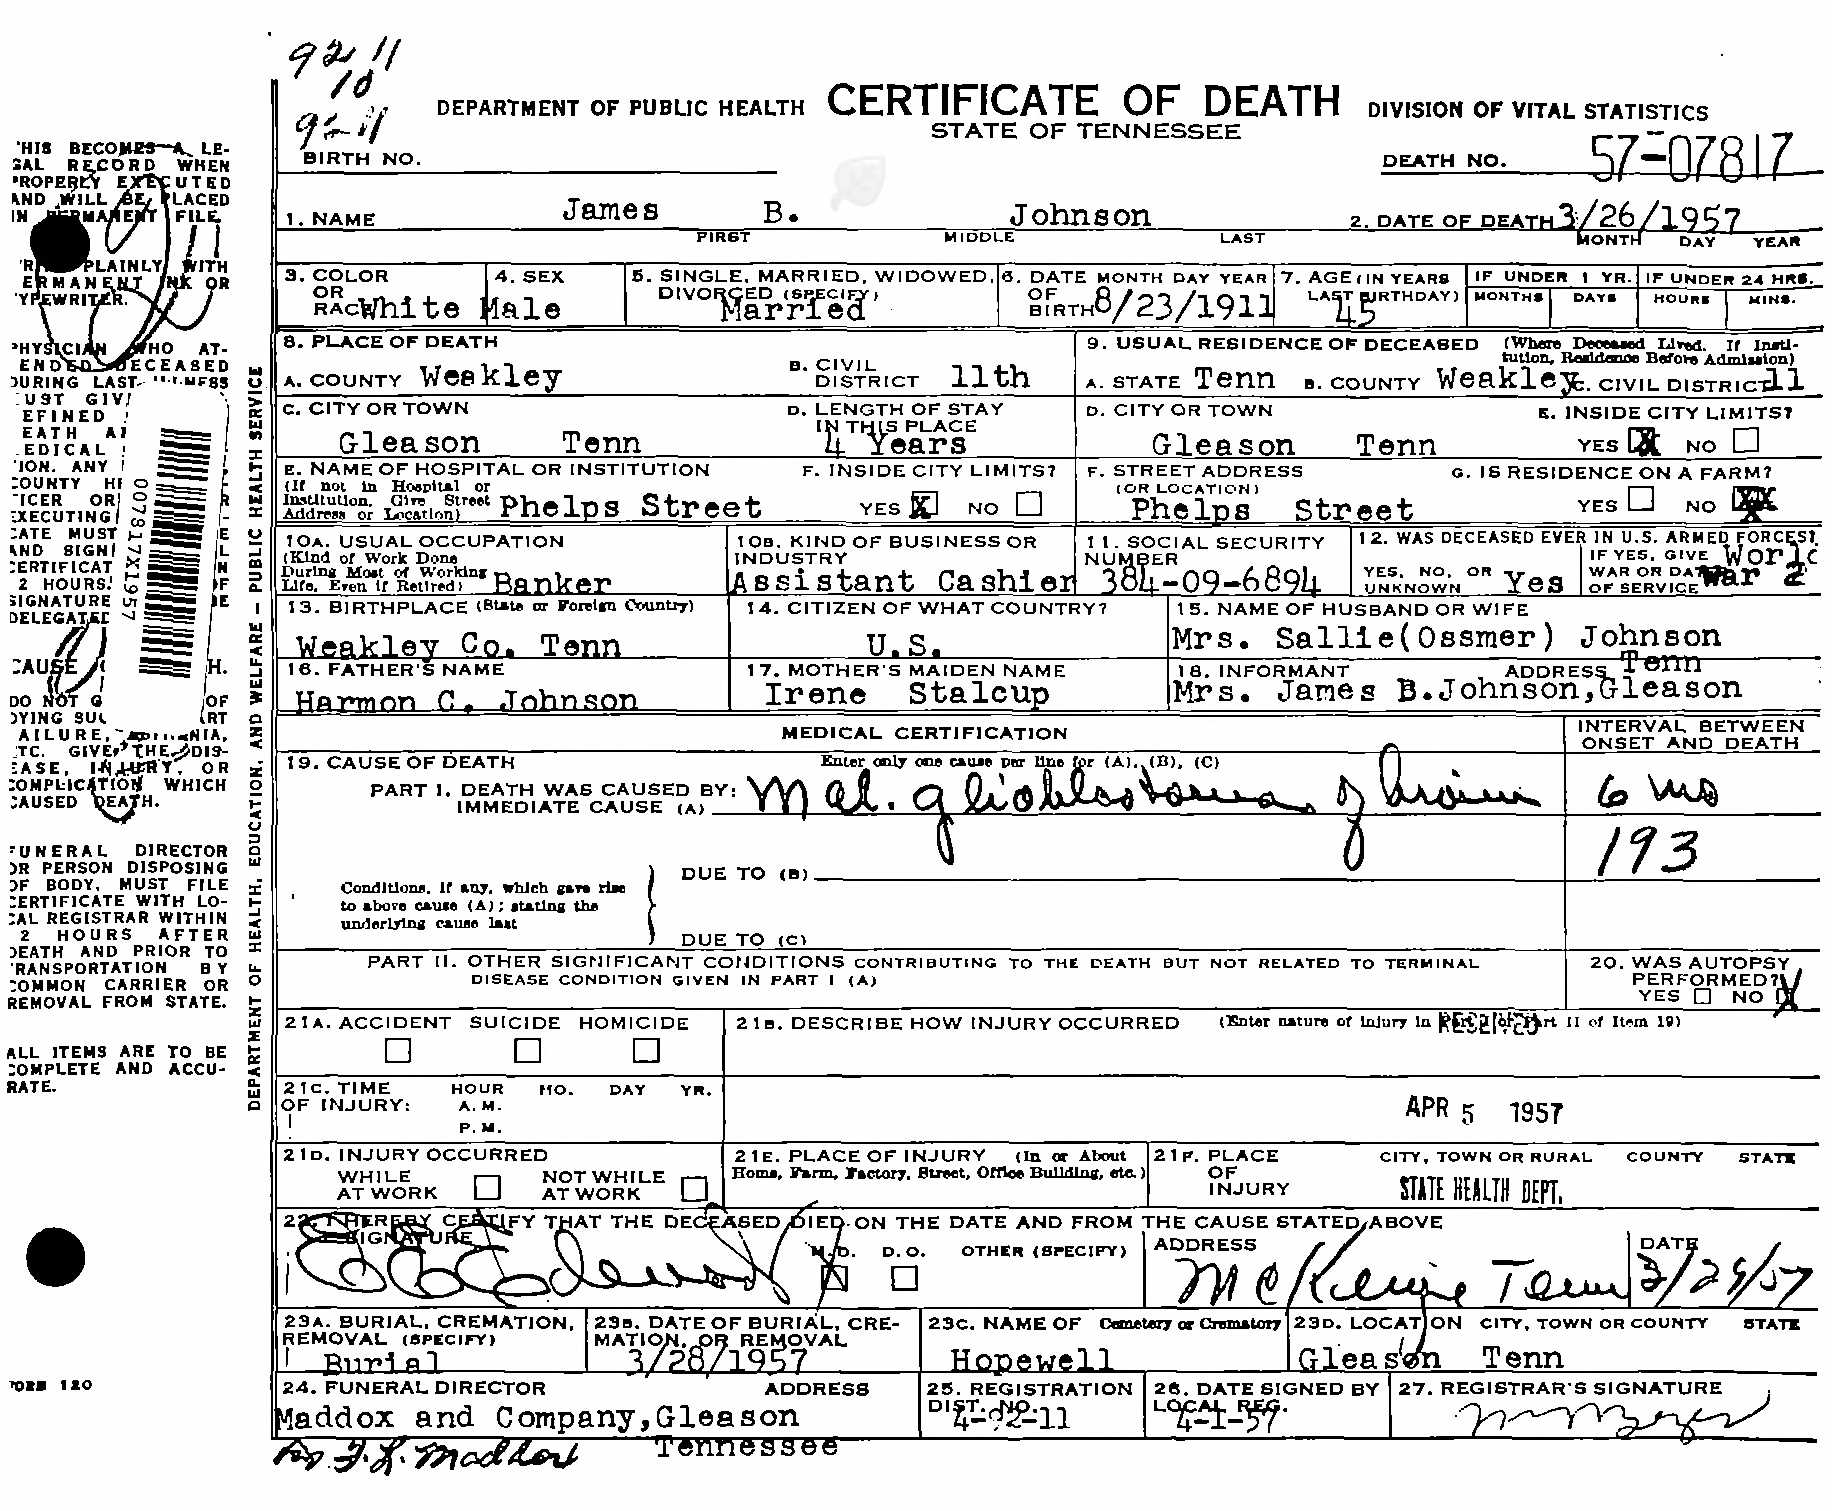 92 11
10
92-11
DEPARTMENT OF PUBLIC HEALTH CERTIFICATE OF DEATH DIVISION OF VITAL STATISTICS
STATE OF TENNESSEE
BIRTH NO. DEATH NO. 57-07817
1. NAME James B. Johnson 2. DATE OF DEATH 3/26/1957
FIRST MIDDLE LAST MONTH DAY YEAR
3. COLOR OR RACE White 4. SEX Male 5. SINGLE, MARRIED, WIDOWED, DIVORCED (SPECIFY) Married 6. DATE OF BIRTH MONTH DAY YEAR 8/23/1911 7. AGE (IN YEARS LAST BIRTHDAY) 45 IF UNDER 1 YR. MONTHS DAYS IF UNDER 24 HRS. HOURS MINS.
8. PLACE OF DEATH
A. COUNTY Weakley B. CIVIL DISTRICT 11th
9. USUAL RESIDENCE OF DECEASED (Where Deceased Lived. If Insti-
tution, Residence Before Admission)
A. STATE Tenn B. COUNTY Weakley C. CIVIL DISTRICT 11
C. CITY OR TOWN Gleason Tenn D. LENGTH OF STAY IN THIS PLACE 4 Years
D. CITY OR TOWN Gleason Tenn E. INSIDE CITY LIMITS? YES X NO
E. NAME OF HOSPITAL OR INSTITUTION
(If not in Hospital or
Institution, Give Street
Address or Location) Phelps Street F. INSIDE CITY LIMITS? YES X NO
F. STREET ADDRESS (OR LOCATION) Phelps Street G. IS RESIDENCE ON A FARM? YES NO XX
10A. USUAL OCCUPATION
(Kind of Work Done
During Most of Working
Life, Even if Retired) Banker
10B. KIND OF BUSINESS OR INDUSTRY Assistant Cashier
11. SOCIAL SECURITY NUMBER 384-09-6894
12. WAS DECEASED EVER IN U.S. ARMED FORCES?
YES, NO, OR UNKNOWN Yes IF YES, GIVE WAR OR DATES OF SERVICE World War 2
13. BIRTHPLACE (State or Foreign Country) Weakley Co. Tenn
14. CITIZEN OF WHAT COUNTRY? U.S.
15. NAME OF HUSBAND OR WIFE Mrs. Sallie(Ossmer) Johnson
16. FATHER'S NAME Harmon C. Johnson
17. MOTHER'S MAIDEN NAME Irene Stalcup
18. INFORMANT ADDRESS Mrs. James B.Johnson,Gleason Tenn
MEDICAL CERTIFICATION
INTERVAL BETWEEN
ONSET AND DEATH
19. CAUSE OF DEATH Enter only one cause per line for (A), (B), (C)
PART I. DEATH WAS CAUSED BY:
IMMEDIATE CAUSE (A) Mal. glioblastoma of brain 6 mo
193
DUE TO (B)
Conditions, if any, which gave rise
to above cause (A); stating the
underlying cause last
DUE TO (C)
PART II. OTHER SIGNIFICANT CONDITIONS CONTRIBUTING TO THE DEATH BUT NOT RELATED TO TERMINAL
DISEASE CONDITION GIVEN IN PART I (A)
20. WAS AUTOPSY
PERFORMED?
YES NO X
21A. ACCIDENT SUICIDE HOMICIDE
21B. DESCRIBE HOW INJURY OCCURRED (Enter nature of injury in Part I or Part II of Item 19)
RECEIVED
21C. TIME OF INJURY: HOUR MO. DAY YR.
A.M.
P.M.
APR 5 1957
21D. INJURY OCCURRED
WHILE AT WORK NOT WHILE AT WORK
21E. PLACE OF INJURY (In or About
Home, Farm, Factory, Street, Office Building, etc.)
21F. PLACE OF INJURY CITY, TOWN OR RURAL COUNTY STATE
STATE HEALTH DEPT.
22. I HEREBY CERTIFY THAT THE DECEASED DIED ON THE DATE AND FROM THE CAUSE STATED ABOVE
SIGNATURE M.D. X D.O. OTHER (SPECIFY) ADDRESS McKenzie Tenn DATE
23A. BURIAL, CREMATION, REMOVAL (SPECIFY) Burial
23B. DATE OF BURIAL, CRE-
MATION, OR REMOVAL 3/28/1957
23C. NAME OF Cemetery or Crematory Hopewell
23D. LOCATION CITY, TOWN OR COUNTY STATE Gleason Tenn
24. FUNERAL DIRECTOR ADDRESS
Maddox and Company,Gleason
Tennessee
F. L. Maddox
25. REGISTRATION DIST. NO. 4-92-11
26. DATE SIGNED BY LOCAL REG. 4-1-57
27. REGISTRAR'S SIGNATURE
DEPARTMENT OF HEALTH, EDUCATION, AND WELFARE — PUBLIC HEALTH SERVICE
007817X1957
FUNERAL DIRECTOR
OR PERSON DISPOSING
OF BODY, MUST FILE
CERTIFICATE WITH LO-
CAL REGISTRAR WITHIN
2 HOURS AFTER
DEATH AND PRIOR TO
TRANSPORTATION BY
COMMON CARRIER OR
REMOVAL FROM STATE.
ALL ITEMS ARE TO BE
COMPLETE AND ACCU-
RATE.
FORM 120